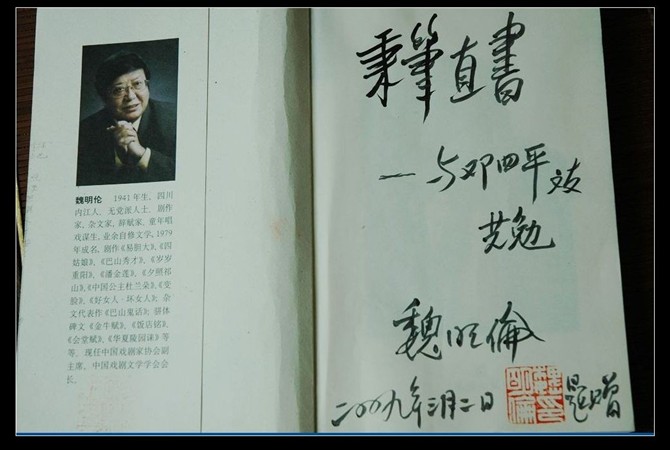 魏明伦 1941年生，四川
内江人，无党派人士，剧作
家、杂文家、辞赋家，童年唱
戏谋生，业余自修文学，1979
年成名。剧作《易胆大》、《四
姑娘》、《巴山秀才》、《岁岁
重阳》、《潘金莲》、《夕照祁
山》、《中国公主杜兰朵》、《变
脸》、《好女人·坏女人》；杂
文代表作《巴山鬼话》；骈体
碑文《金牛赋》、《饭店铭》、
《会堂赋》、《华夏陵园诔》等
等。现任中国戏剧家协会副
主席，中国戏剧文学学会会
长。
秉筆直書
—与邓四平友
共勉
魏明倫
二〇〇九年三月二日
題贈